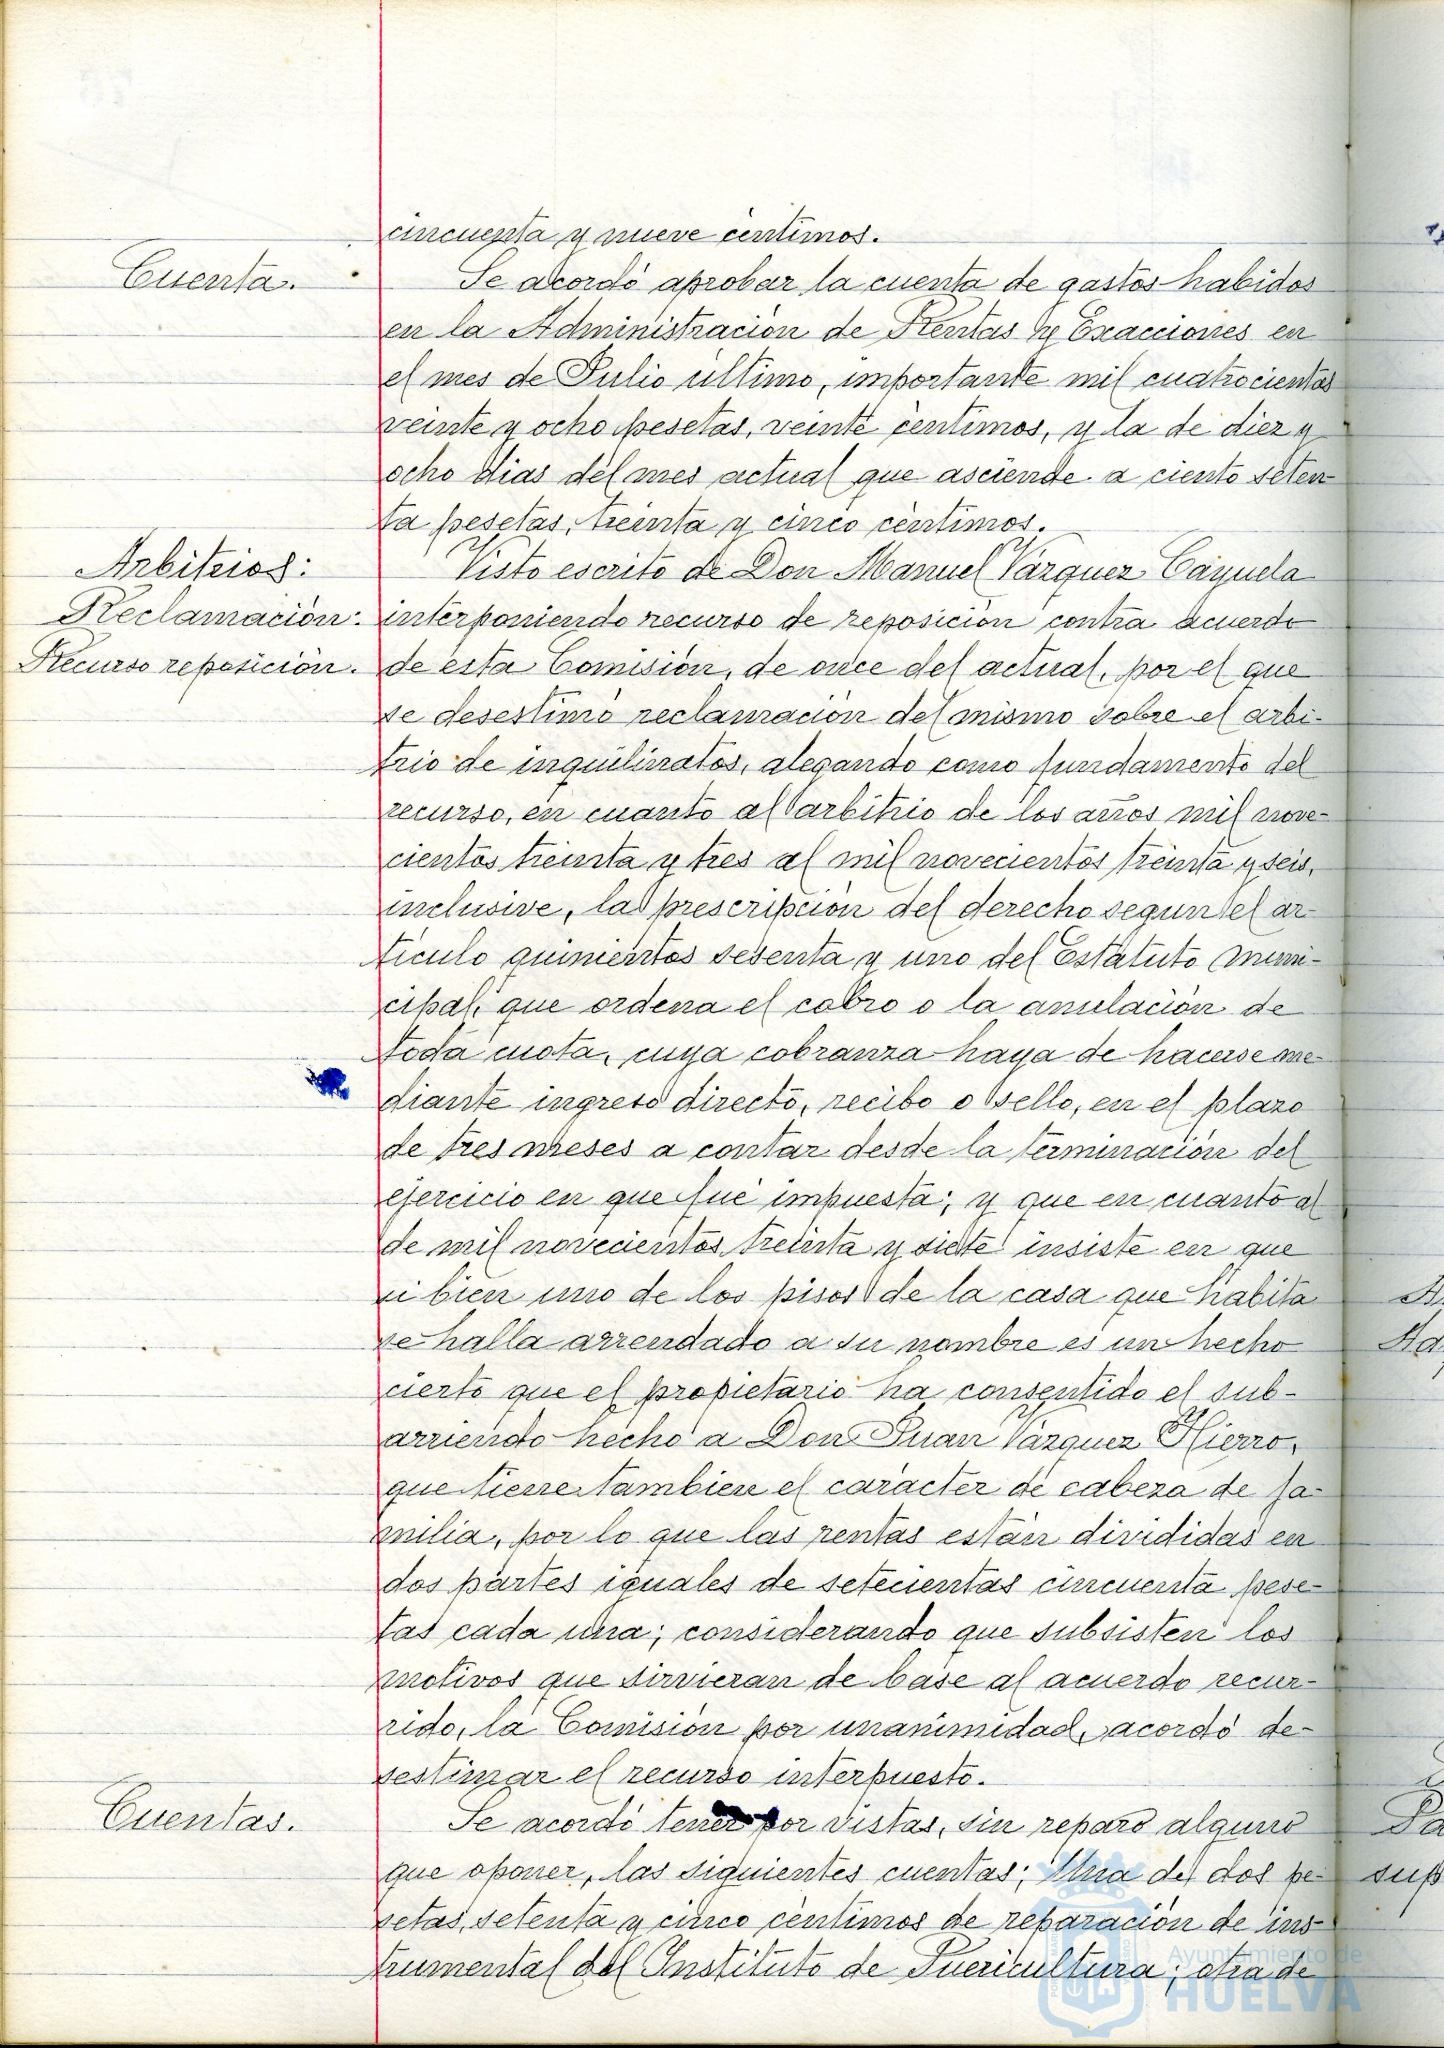 cincuenta y nueve céntimos.
Cuenta.
Se acordó aprobar la cuenta de gastos habidos
en la Administración de Rentas y Exacciones en
el mes de Julio último, importante mil cuatrocientas
veinte y ocho pesetas, veinte céntimos, y la de diez y
ocho dias del mes actual que asciende a ciento seten-
ta pesetas, treinta y cinco céntimos.
Arbitrios:
Reclamación:
Recurso reposición.
Visto escrito de Don Manuel Vázquez Cayuela
interponiendo recurso de reposición contra acuerdo
de esta Comisión, de once del actual, por el que
se desestimó reclamación del mismo sobre el arbi-
trio de inquilinatos, alegando como fundamento del
recurso, en cuanto al arbitrio de los años mil nove-
cientos treinta y tres al mil novecientos treinta y seis,
inclusive, la prescripción del derecho segun el ar-
tículo quinientos sesenta y uno del Estatuto Muni-
cipal, que ordena el cobro o la anulación de
toda cuota, cuya cobranza haya de hacerse me-
diante ingreso directo, recibo o sello, en el plazo
de tres meses a contar desde la terminación del
ejercicio en que fué impuesta; y que en cuanto al
de mil novecientos treinta y siete insiste en que
si bien uno de los pisos de la casa que habita
se halla arrendado a su nombre es un hecho
cierto que el propietario ha consentido el sub-
arriendo hecho a Don Juan Vázquez Hierro,
que tiene tambien el carácter de cabeza de fa-
milia, por lo que las rentas están divididas en
dos partes iguales de setecientas cincuenta pese-
tas cada una; considerando que subsisten los
motivos que sirvieran de base al acuerdo recur-
rido, la Comisión por unanimidad, acordó de-
sestimar el recurso interpuesto.
Cuentas.
Se acordó tener por vistas, sin reparo alguno
que oponer, las siguientes cuentas; Una de dos pe-
setas, setenta y cinco céntimos de reparación de ins-
trumental del Instituto de Puericultura; otra de
Ayuntamiento de
HUELVA